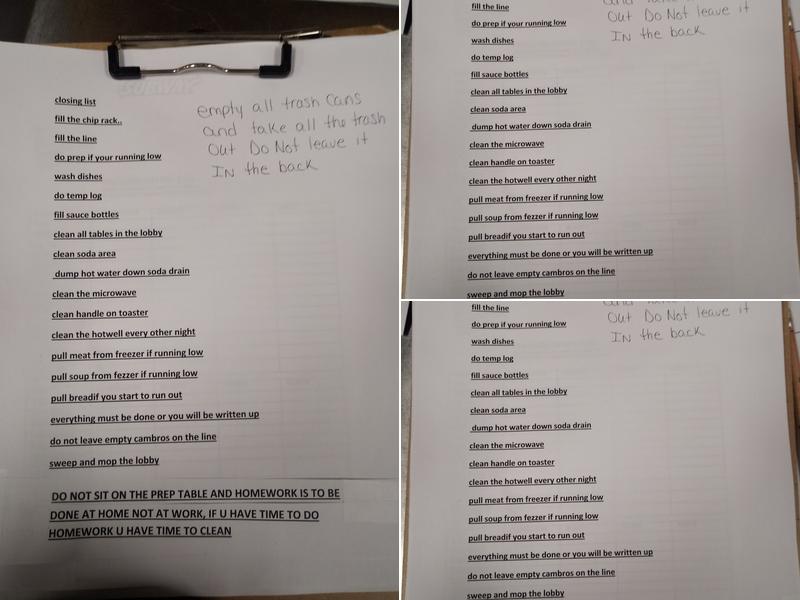 closing list
fill the chip rack..
fill the line
do prep if your running low
wash dishes
do temp log
fill sauce bottles
clean all tables in the lobby
clean soda area
dump hot water down soda drain
clean the microwave
clean handle on toaster
clean the hotwell every other night
pull meat from freezer if running low
pull soup from fezzer if running low
pull breadif you start to run out
everything must be done or you will be written up
do not leave empty cambros on the line
sweep and mop the lobby
DO NOT SIT ON THE PREP TABLE AND HOMEWORK IS TO BE
DONE AT HOME NOT AT WORK, IF U HAVE TIME TO DO
HOMEWORK U HAVE TIME TO CLEAN
empty all trash cans
and take all the trash
Out Do Not leave it
IN the back
fill the line
do prep if your running low
wash dishes
do temp log
fill sauce bottles
clean all tables in the lobby
clean soda area
dump hot water down soda drain
clean the microwave
clean handle on toaster
clean the hotwell every other night
pull meat from freezer if running low
pull soup from fezzer if running low
pull breadif you start to run out
everything must be done or you will be written up
do not leave empty cambros on the line
sweep and mop the lobby
Out Do Not leave it
IN the back
fill the line
do prep if your running low
wash dishes
do temp log
fill sauce bottles
clean all tables in the lobby
clean soda area
dump hot water down soda drain
clean the microwave
clean handle on toaster
clean the hotwell every other night
pull meat from freezer if running low
pull soup from fezzer if running low
pull breadif you start to run out
everything must be done or you will be written up
do not leave empty cambros on the line
sweep and mop the lobby
Out Do Not leave it
IN the back